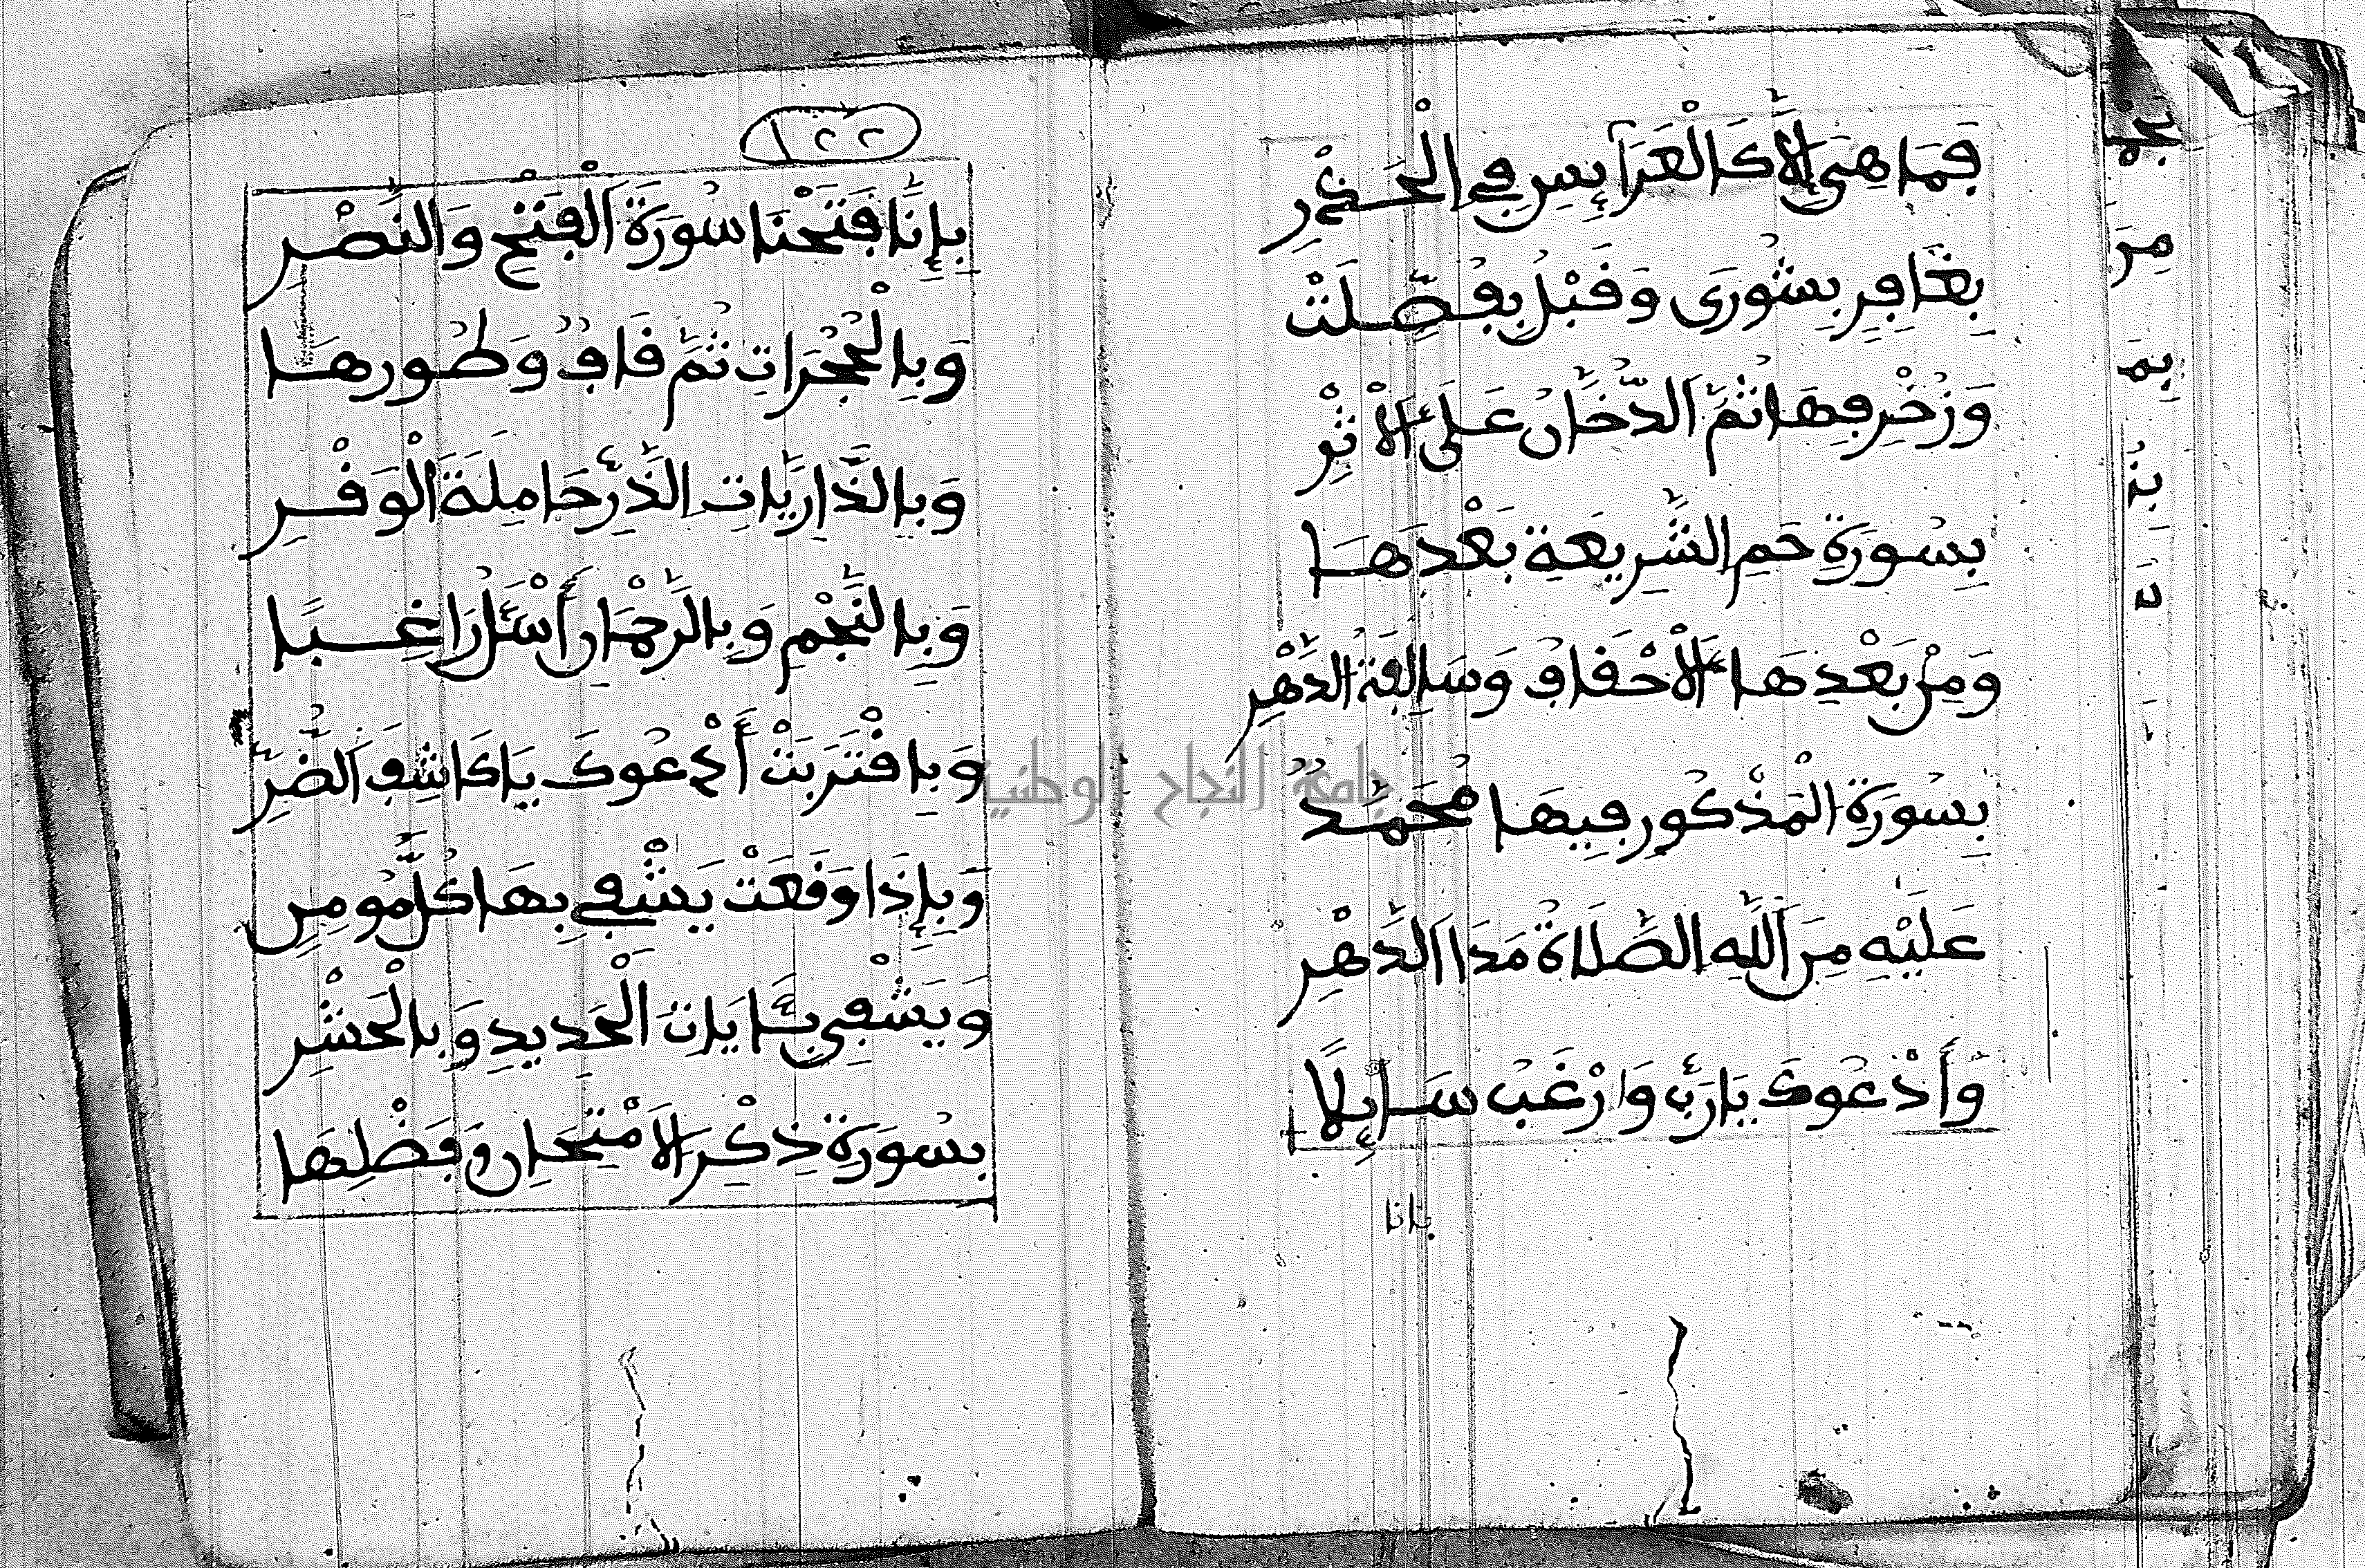 فَمَا هِيَ إِلَّا كَالْعَرَائِسِ فِي الْخُضْرِ
بِغَافِرِ بِشُورَى وَقَبْلُ بِفُصِّلَتْ
وَزُخْرِفِهَا ثُمَّ الدُّخَانُ عَلَى الْأَثْرِ
بِسُورَةِ حَم الشَّرِيعَةِ بَعْدِهَا
وَمِنْ بَعْدِهَا الْأَحْقَافُ وَسَالِفَةِ الدَّهْرِ
بِسُورَةِ الْمَذْكُورِ فِيهَا مُحَمَّدٌ
عَلَيْهِ مِنَ اللَّهِ الصَّلَاةُ مَدَا الدَّهْرِ
وَأَدْعُوكَ يَارَبِّ وَارْغَبُ سَائِلًا
بانا
١٢٢
بِإِنَّا فَتَحْنَا سُورَةَ الْفَتْحِ وَالنَّصْرِ
وَبِالْحُجُرَاتِ ثُمَّ قَافُ وَطُورِهَا
وَبِالذَّارِيَاتِ الذَّرْ حَامِلَةَ الْوَقْرِ
وَبِالنَّجْمِ وَبِالرَّحْمَانِ أَسْئَلُ رَاغِبًا
وَبِاقْتَرَبَتْ أَدْعُوكَ يَاكَاشِفَ الضُّرِّ
وَبِإِذَا وَقَعَتْ يَشْفِي بِهَا كُلُّ مُومِنٍ
وَيَشْفِي بِئَايَاتِ الْحَدِيدِ وَبِالْحَشْرِ
بِسُورَةِ ذِكْرِ الْامْتِحَانِ وَفَضْلِهَا
جامعة النجاح الوطنية